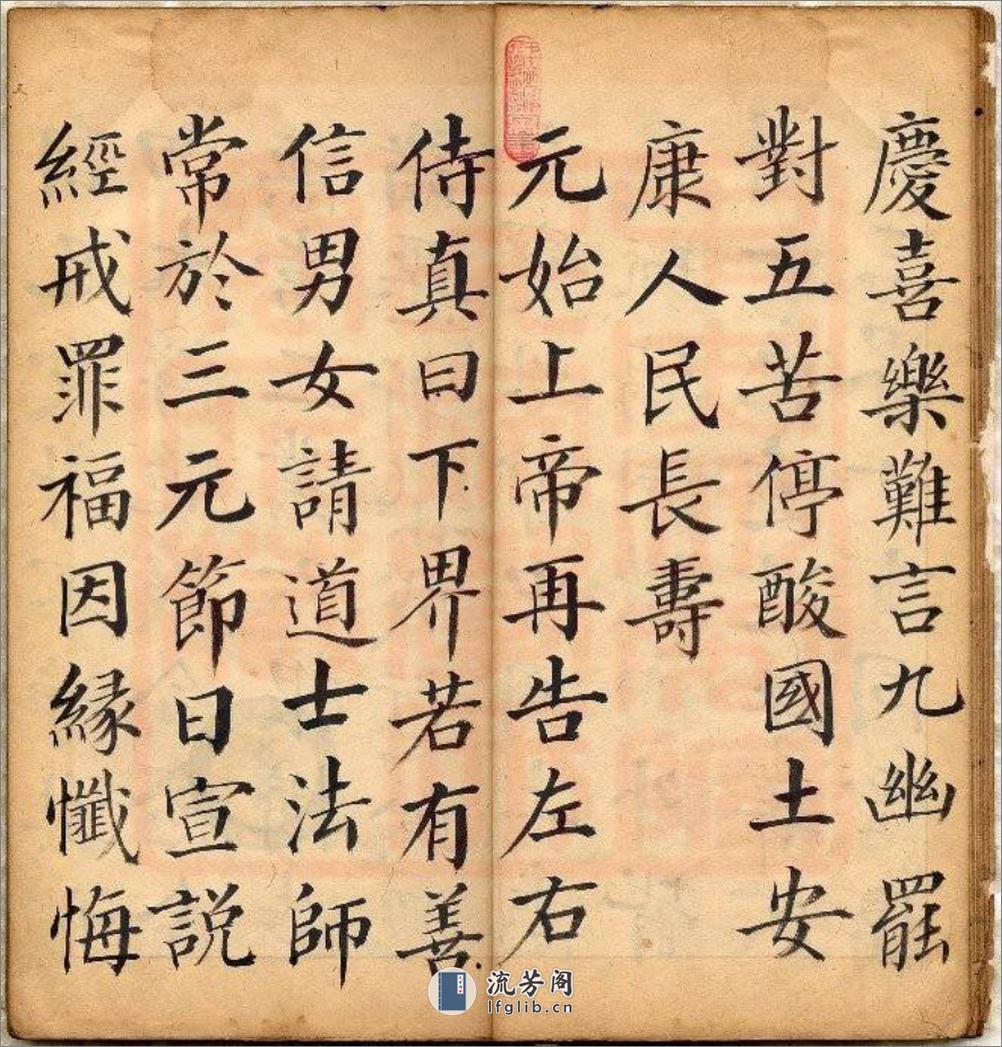 慶喜樂難言九幽罷
對五苦停酸國土安
康人民長壽
元始上帝再告左右
侍真曰下界若有善
信男女請道士法師
常於三元節日宣説
經戒罪福因緣懺悔
流芳阁
lfglib.cn